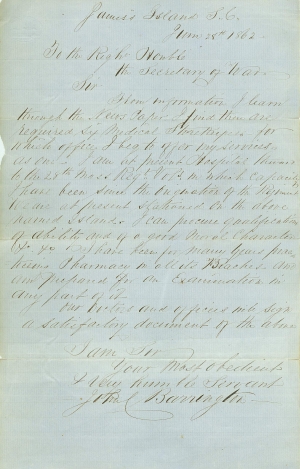 James Island S.C.
June 28th 1862
To the Right Honble
the Secretary of War
Sir
From information I learn
through the News Paper I find there are
required Medical
which office I beg to offer my services
as one. I am at present Hospital
to the 28th Mass Regt Vols in which capacity
I have been since the organization of the Regiment
We are at present stationed on the above
named Island. I can procure qualifications
of ability and of a good Moral Character
I have been for many years
Pharmacy in all its Branches and
am prepared for an Examination in
any part of it.
Our Doctors and officers will sign
a satisfactory document of the above
I am Sir
Your Most Obedient
& Very humble Servant
John C Barrington